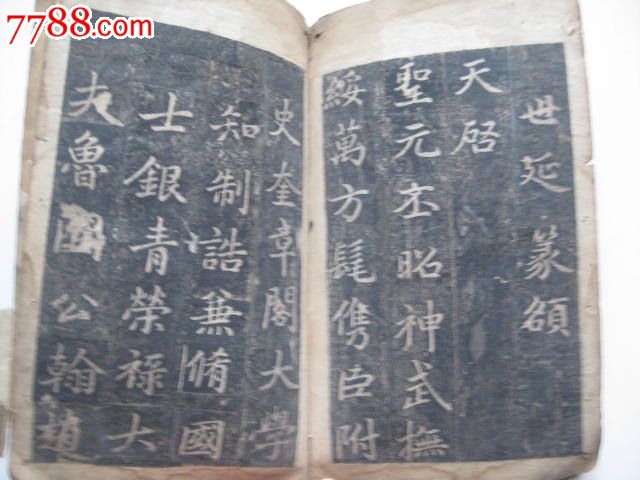 7788.com
世延篆額
天啓
聖元丕昭神武撫
綏萬方髦儁臣附
史奎章閣大學
知制誥兼脩國
士銀青榮祿大
夫魯國公翰趙